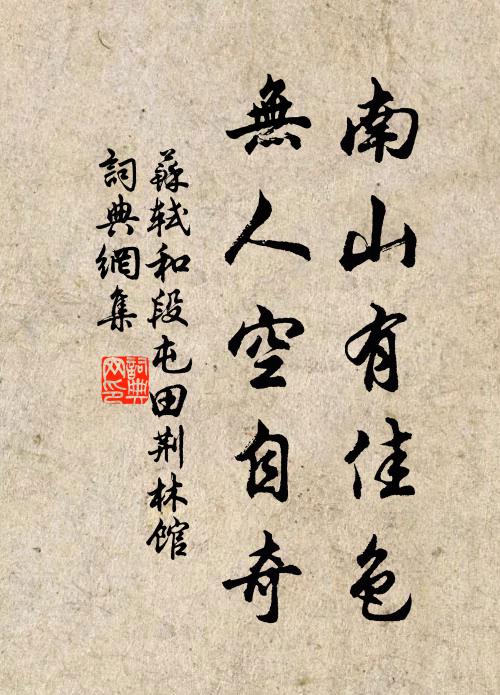 南山有佳色
無人空自奇
蘇軾和段屯田荆林館
詞典網集
詞典
网印